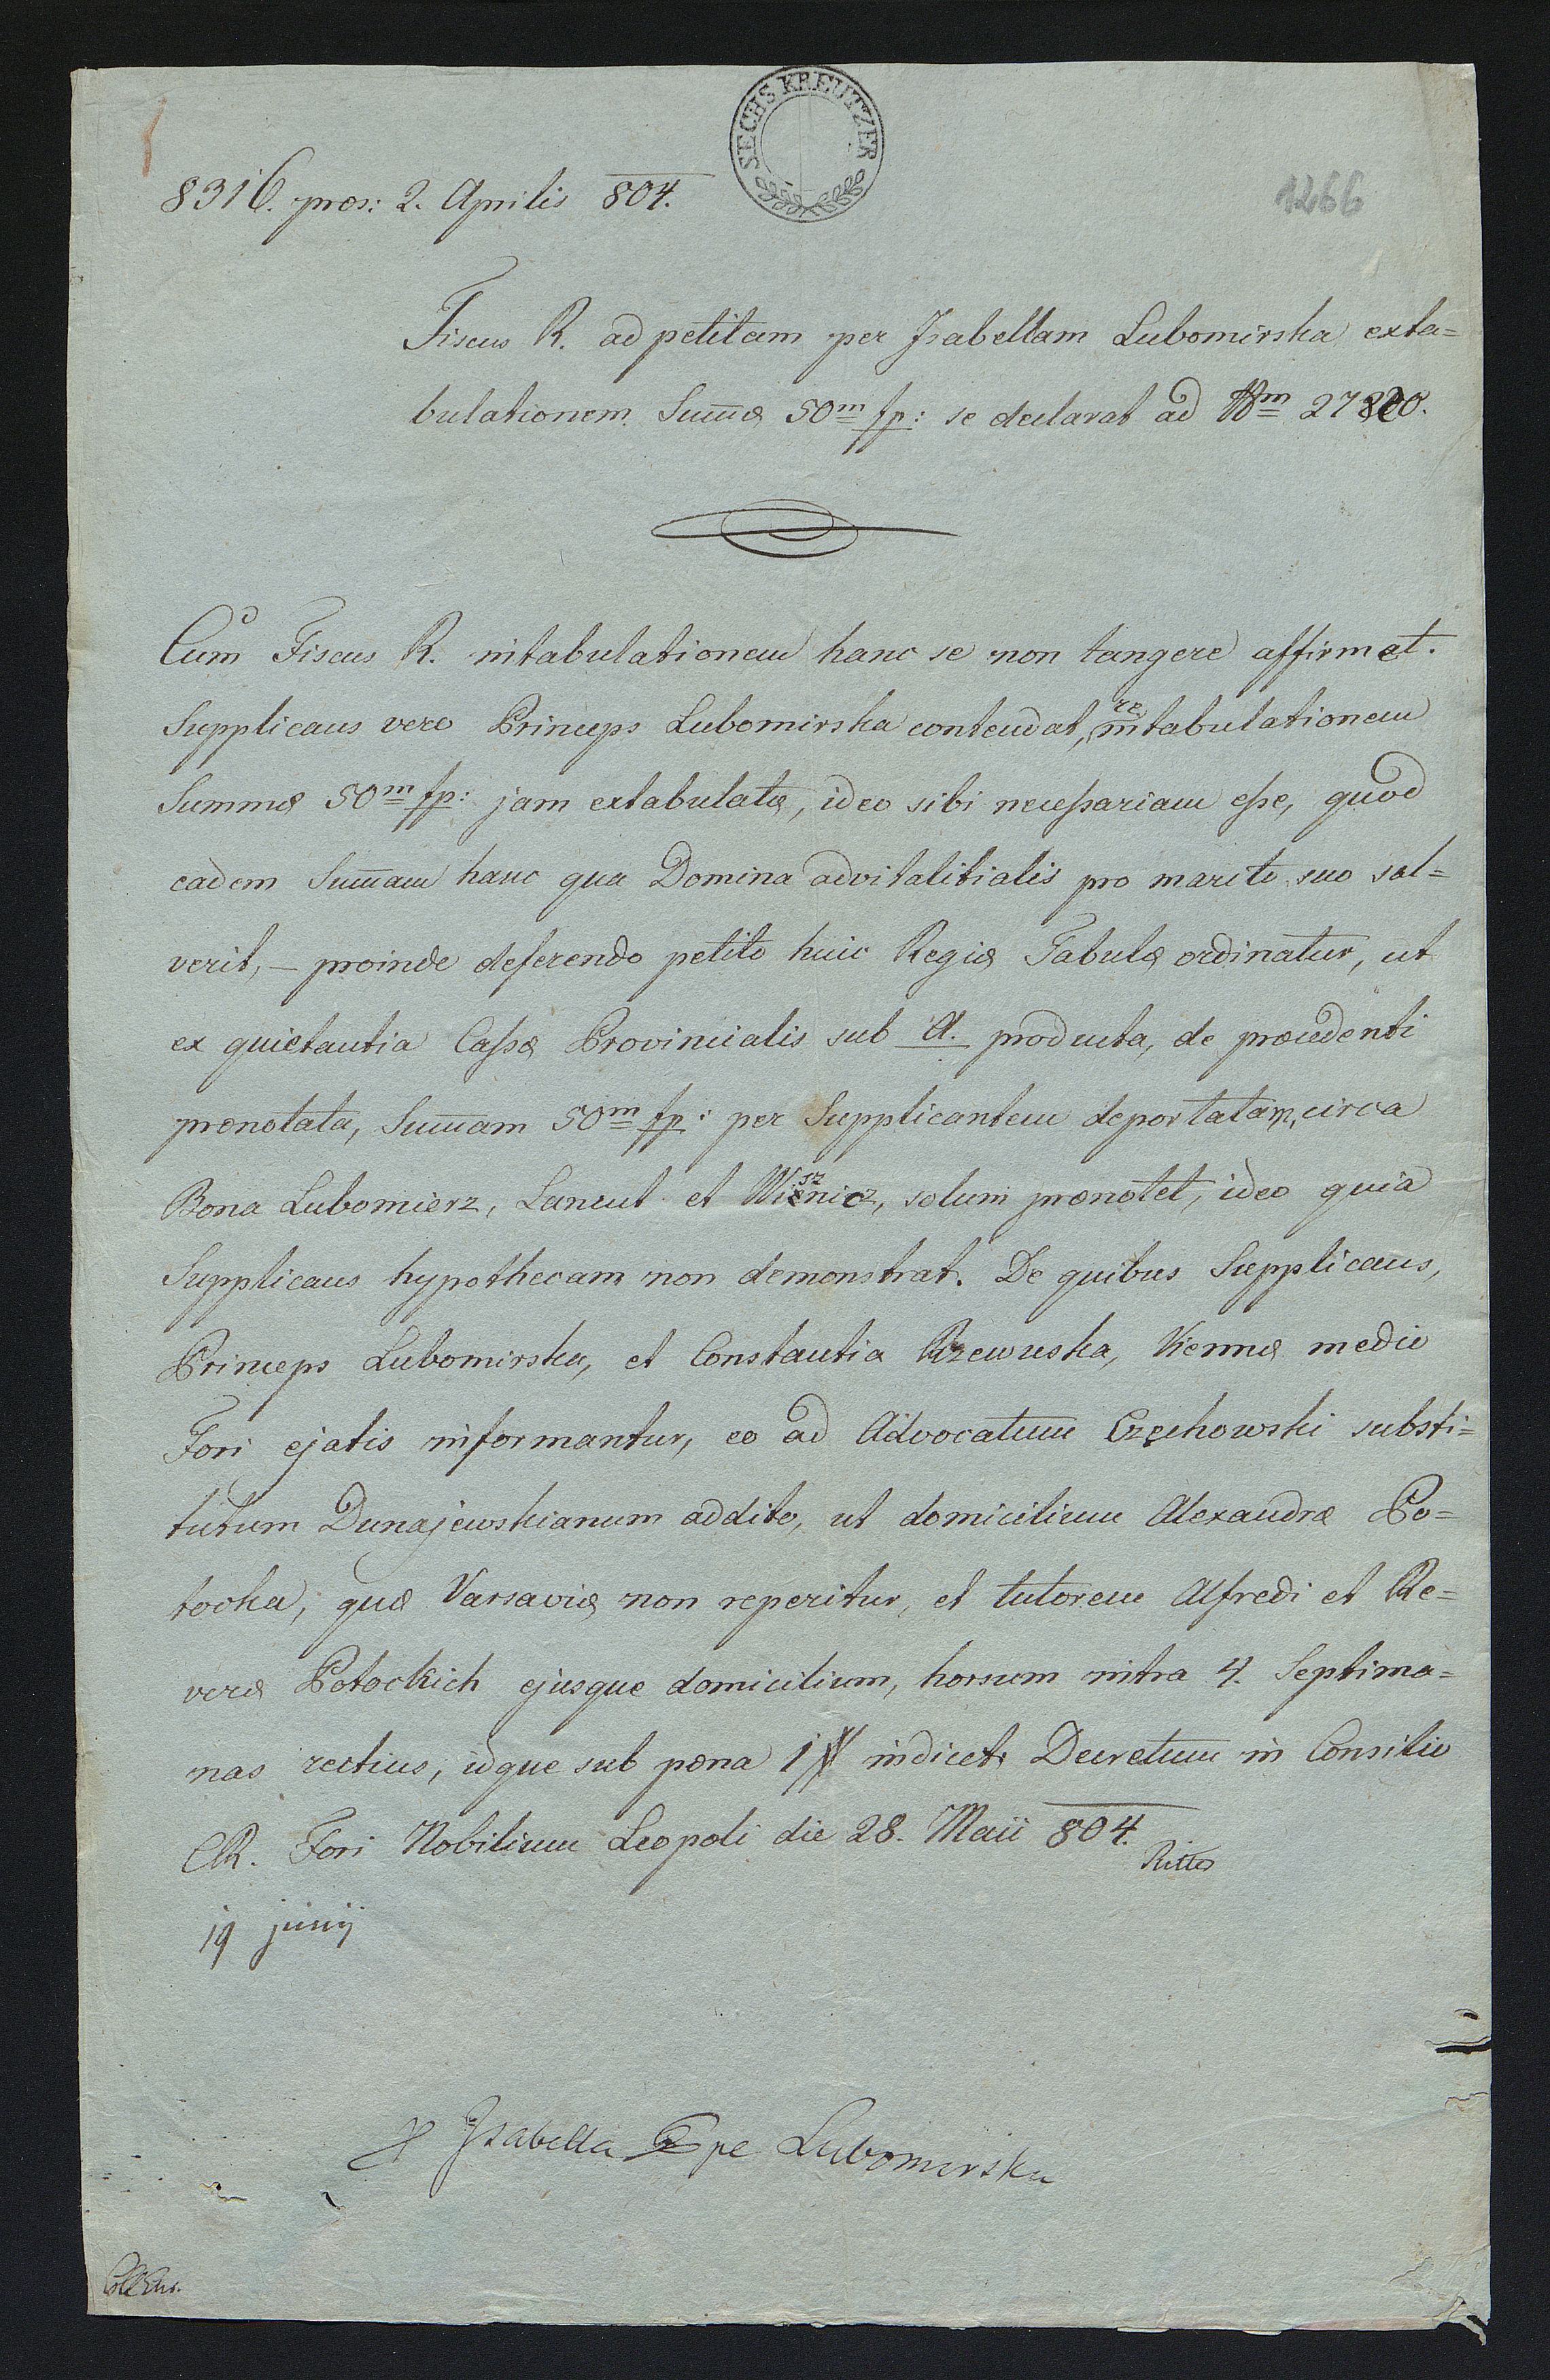 SECHS KREUTZER
8316. præs: 2. Aprilis 804.
1266
Fiscus R. ad petitam per Isabellam Lubomirska exta=
bulationem Sum̄æ 50m fp: se declarat ad Num 27820.
Cum Fiscus R. intabulationem hanc se non tangere affirmet.
Supplicans vero Princeps Lubomirska contendat, reintabulationem
Summæ 50m fp: jam extabulatæ, ideo sibi necessariam esse, quod
eadem Sum̄am hanc qua Domina advitalitialis pro marito suo sol=
verit, – proinde deferendo petito huic Regiæ Tabulæ ordinatur, ut
ex quietantia Cassæ Provincialis sub A. producta, de præcedenti
prænotata, Sum̄am 50m fp: per Supplicantem deportatam, circa
Bona Lubomierz, Lancut et Wisznicz, solum prænotet, ideo quia
Supplicans hypothecam non demonstrat. De quibus Supplicans,
Princeps Lubomirska, et Constantia Rzewuska, Viennæ medio
Fori ejatis informantur, eo ad Advocatum Czechowski substi=
tutum Dunajewskianum addito, ut domicilium Alexandræ Po=
tocka, quæ Varsaviæ non reperitur, et tutorem Alfredi et Re=
veræ Potockich ejusque domicilium, horsum intra 4. Septima=
nas rectius, idque sub pœna 1# indicet. Decretum in Consilio
CR. Fori Nobilium Leopoli die 28. Maii 804.
Ritter
19 junij
Isabella Pe Lubomirska
Coll Kur.